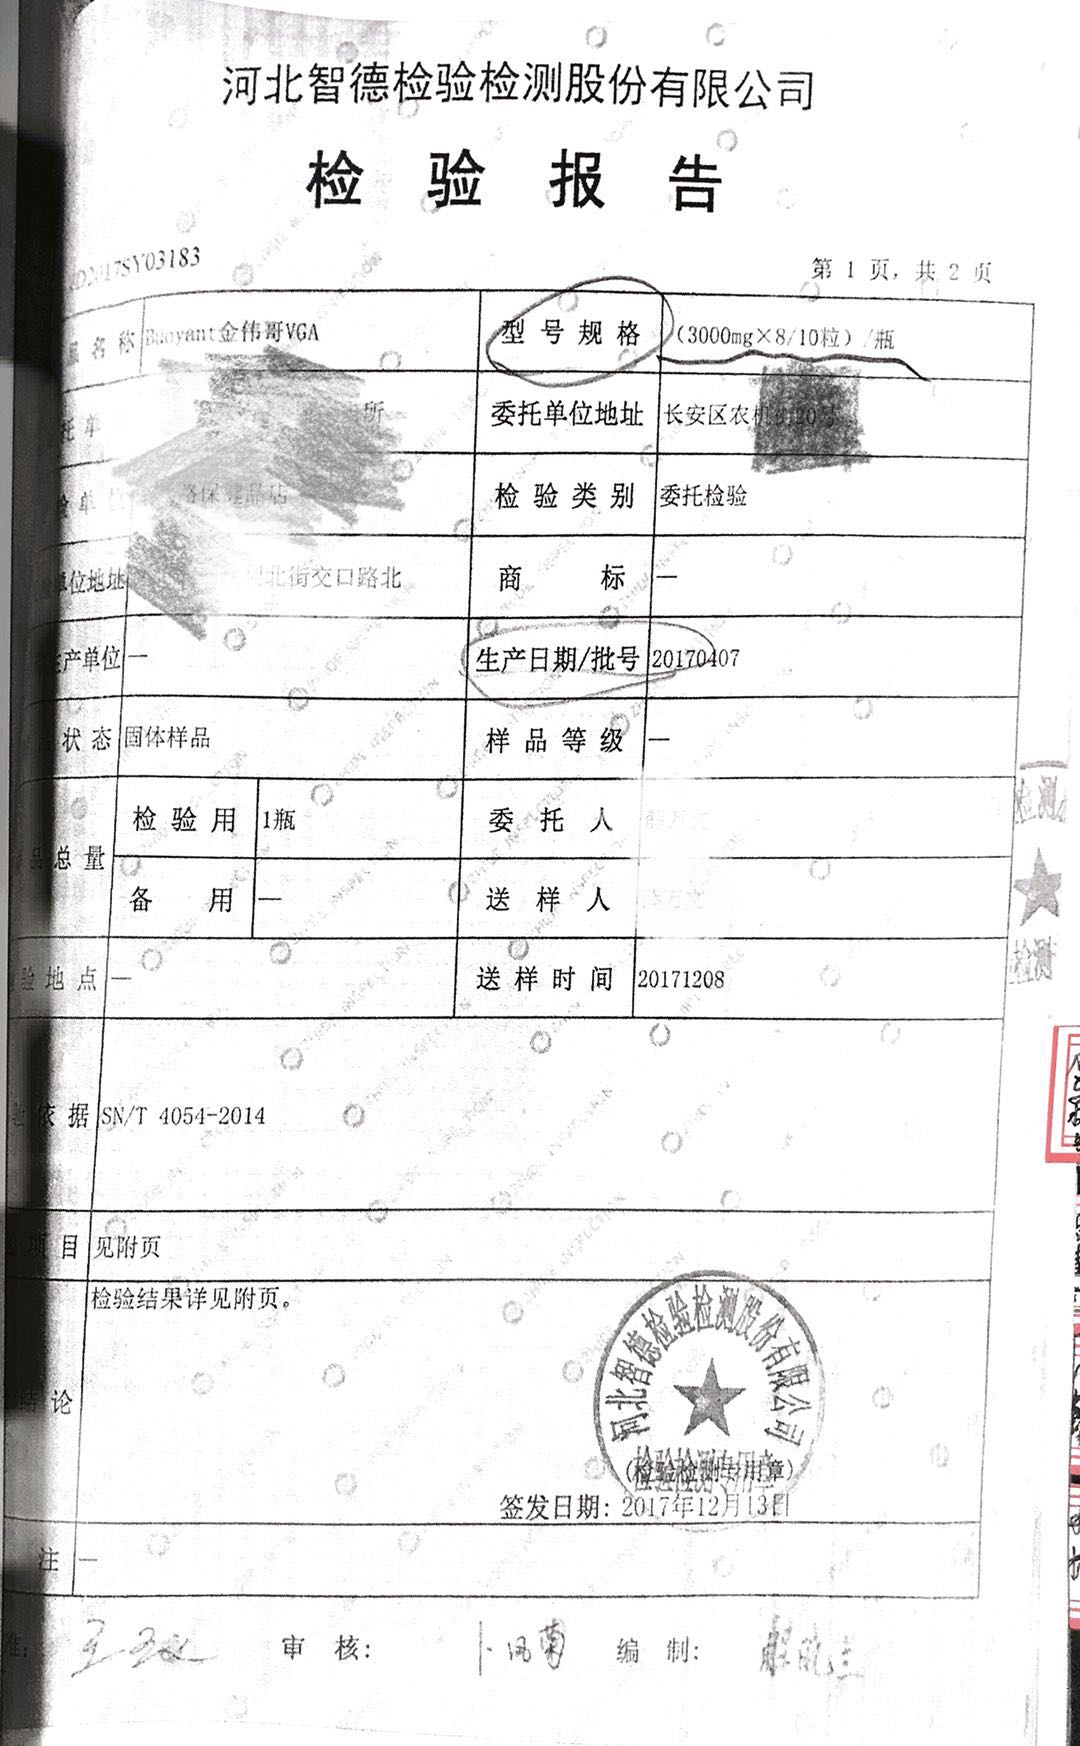 河北智德检验检测股份有限公司
检验报告
D2017SY03183
第 1 页, 共 2 页
名称 Buoyant金伟哥VGA 型号规格 (3000mg×8/10粒) /瓶
托单 所 委托单位地址 长安区农机街20号
单 保健品店 检验类别 委托检验
单位地址 北街交口路北 商标 —
生产单位 — 生产日期/批号 20170407
状态 固体样品 样品等级 —
品总量 检验用 1瓶 委托人
备用 — 送样人 万文
验地点 — 送样时间 20171208
依据 SN/T 4054-2014
项目 见附页
检验结果详见附页。
结论
河北智德检验检测股份有限公司
检验检测专用章
(检验检测专用章)
签发日期: 2017年12月13日
注 —
准: 审核: 编制:
检测
检测